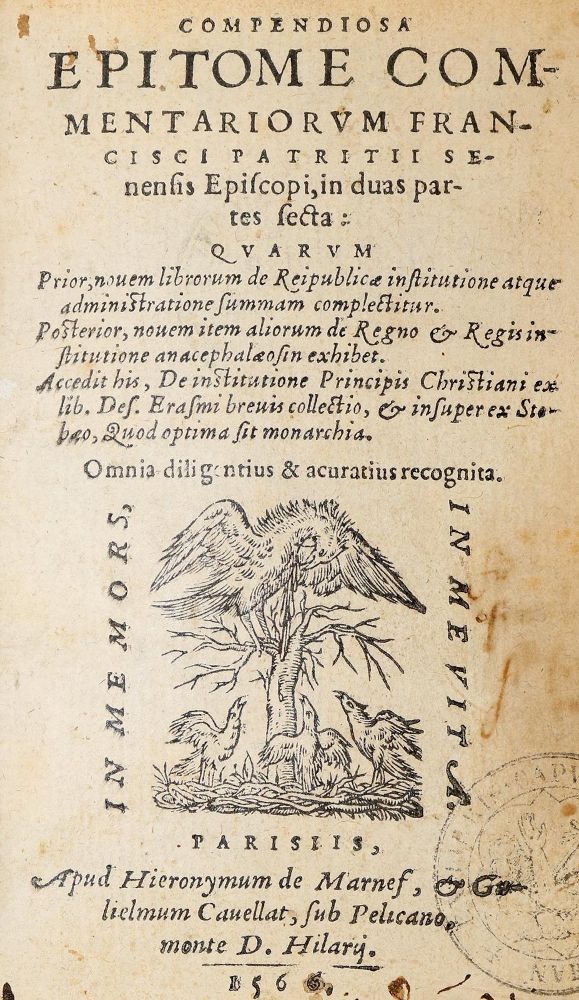 COMPENDIOSA
EPITOME COM-
MENTARIORVM FRAN-
CISCI PATRITII SE-
nensis Episcopi, in duas par-
tes secta:
QVARVM
Prior, nouem librorum de Reipublicæ institutione atque
administratione summam complectitur.
Posterior, nouem item aliorum de Regno & Regis in-
stitutione anacephalæosin exhibet.
Accedit his, De institutione Principis Christiani ex
lib. Des. Erasmi breuis collectio, & insuper ex Sto-
bæo, Quod optima sit monarchia.
Omnia diligentius & acuratius recognita.
IN ME MORS,
IN ME VITA.
PARISIIS,
Apud Hieronymum de Marnef, & Gu-
lielmum Cauellat, sub Pelicano,
monte D. Hilarij.
1566.